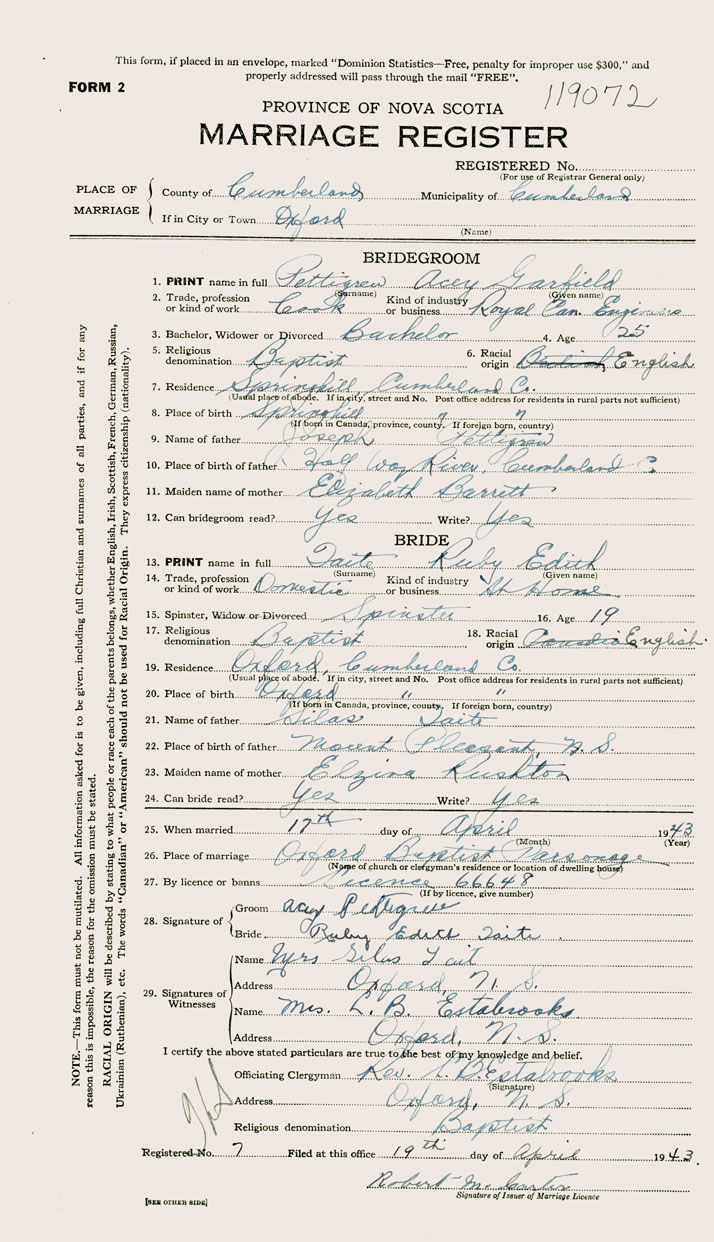 This form, if placed in an envelope, marked "Dominion Statistics—Free, penalty for improper use $300," and
properly addressed will pass through the mail "FREE".
FORM 2
119072
PROVINCE OF NOVA SCOTIA
MARRIAGE REGISTER
REGISTERED No.
(For use of Registrar General only)
PLACE OF MARRIAGE
County of Cumberland Municipality of Cumberland
If in City or Town Oxford
(Name)
BRIDEGROOM
1. PRINT name in full Pettigrew Acey Garfield
(Surname) (Given name)
2. Trade, profession or kind of work Cook Kind of industry or business Royal Can. Engineers
3. Bachelor, Widower or Divorced Bachelor 4. Age 25
5. Religious denomination Baptist 6. Racial origin English
7. Residence Springhill, Cumberland Co.
(Usual place of abode. If in city, street and No. Post office address for residents in rural parts not sufficient)
8. Place of birth Springhill " "
(If born in Canada, province, county. If foreign born, country)
9. Name of father Joseph Pettigrew
10. Place of birth of father Half Way River, Cumberland Co.
11. Maiden name of mother Elizabeth Barrett
12. Can bridegroom read? Yes Write? Yes
BRIDE
13. PRINT name in full Taite Ruby Edith
(Surname) (Given name)
14. Trade, profession or kind of work Domestic Kind of industry or business At Home
15. Spinster, Widow or Divorced Spinster 16. Age 19
17. Religious denomination Baptist 18. Racial origin Canadian English.
19. Residence Oxford, Cumberland Co.
(Usual place of abode. If in city, street and No. Post office address for residents in rural parts not sufficient)
20. Place of birth Oxford " "
(If born in Canada, province, county. If foreign born, country)
21. Name of father Silas Taite
22. Place of birth of father Mount Pleasant, N.S.
23. Maiden name of mother Elzina Rushton
24. Can bride read? Yes Write? Yes
25. When married 17th day of April 1943
(Month) (Year)
26. Place of marriage Oxford Baptist Parsonage
(Name of church or clergyman's residence or location of dwelling house)
27. By licence or banns Licence 66648
(If by licence, give number)
28. Signature of
Groom Acey Pettigrew
Bride Ruby Edith Taite.
29. Signatures of Witnesses
Name Mrs Silas Tait
Address Oxford, N. S.
Name Mrs. L. B. Estabrooks.
Address Oxford, N. S.
I certify the above stated particulars are true to the best of my knowledge and belief.
Officiating Clergyman Rev. L. B. Estabrooks.
(Signature)
Address Oxford, N. S.
Religious denomination Baptist
Registered No. 7 Filed at this office 19th day of April 1943.
Robert McCarter
Signature of Issuer of Marriage Licence
[SEE OTHER SIDE]
NOTE.—This form must not be mutilated. All information asked for is to be given, including full Christian and surnames of all parties, and if for any
reason this is impossible, the reason for the omission must be stated.
RACIAL ORIGIN will be described by stating to what people or race each of the parents belongs, whether English, Irish, Scottish, French, German, Russian,
Ukrainian (Ruthenian), etc. The words "Canadian" or "American" should not be used for Racial Origin. They express citizenship (nationality).